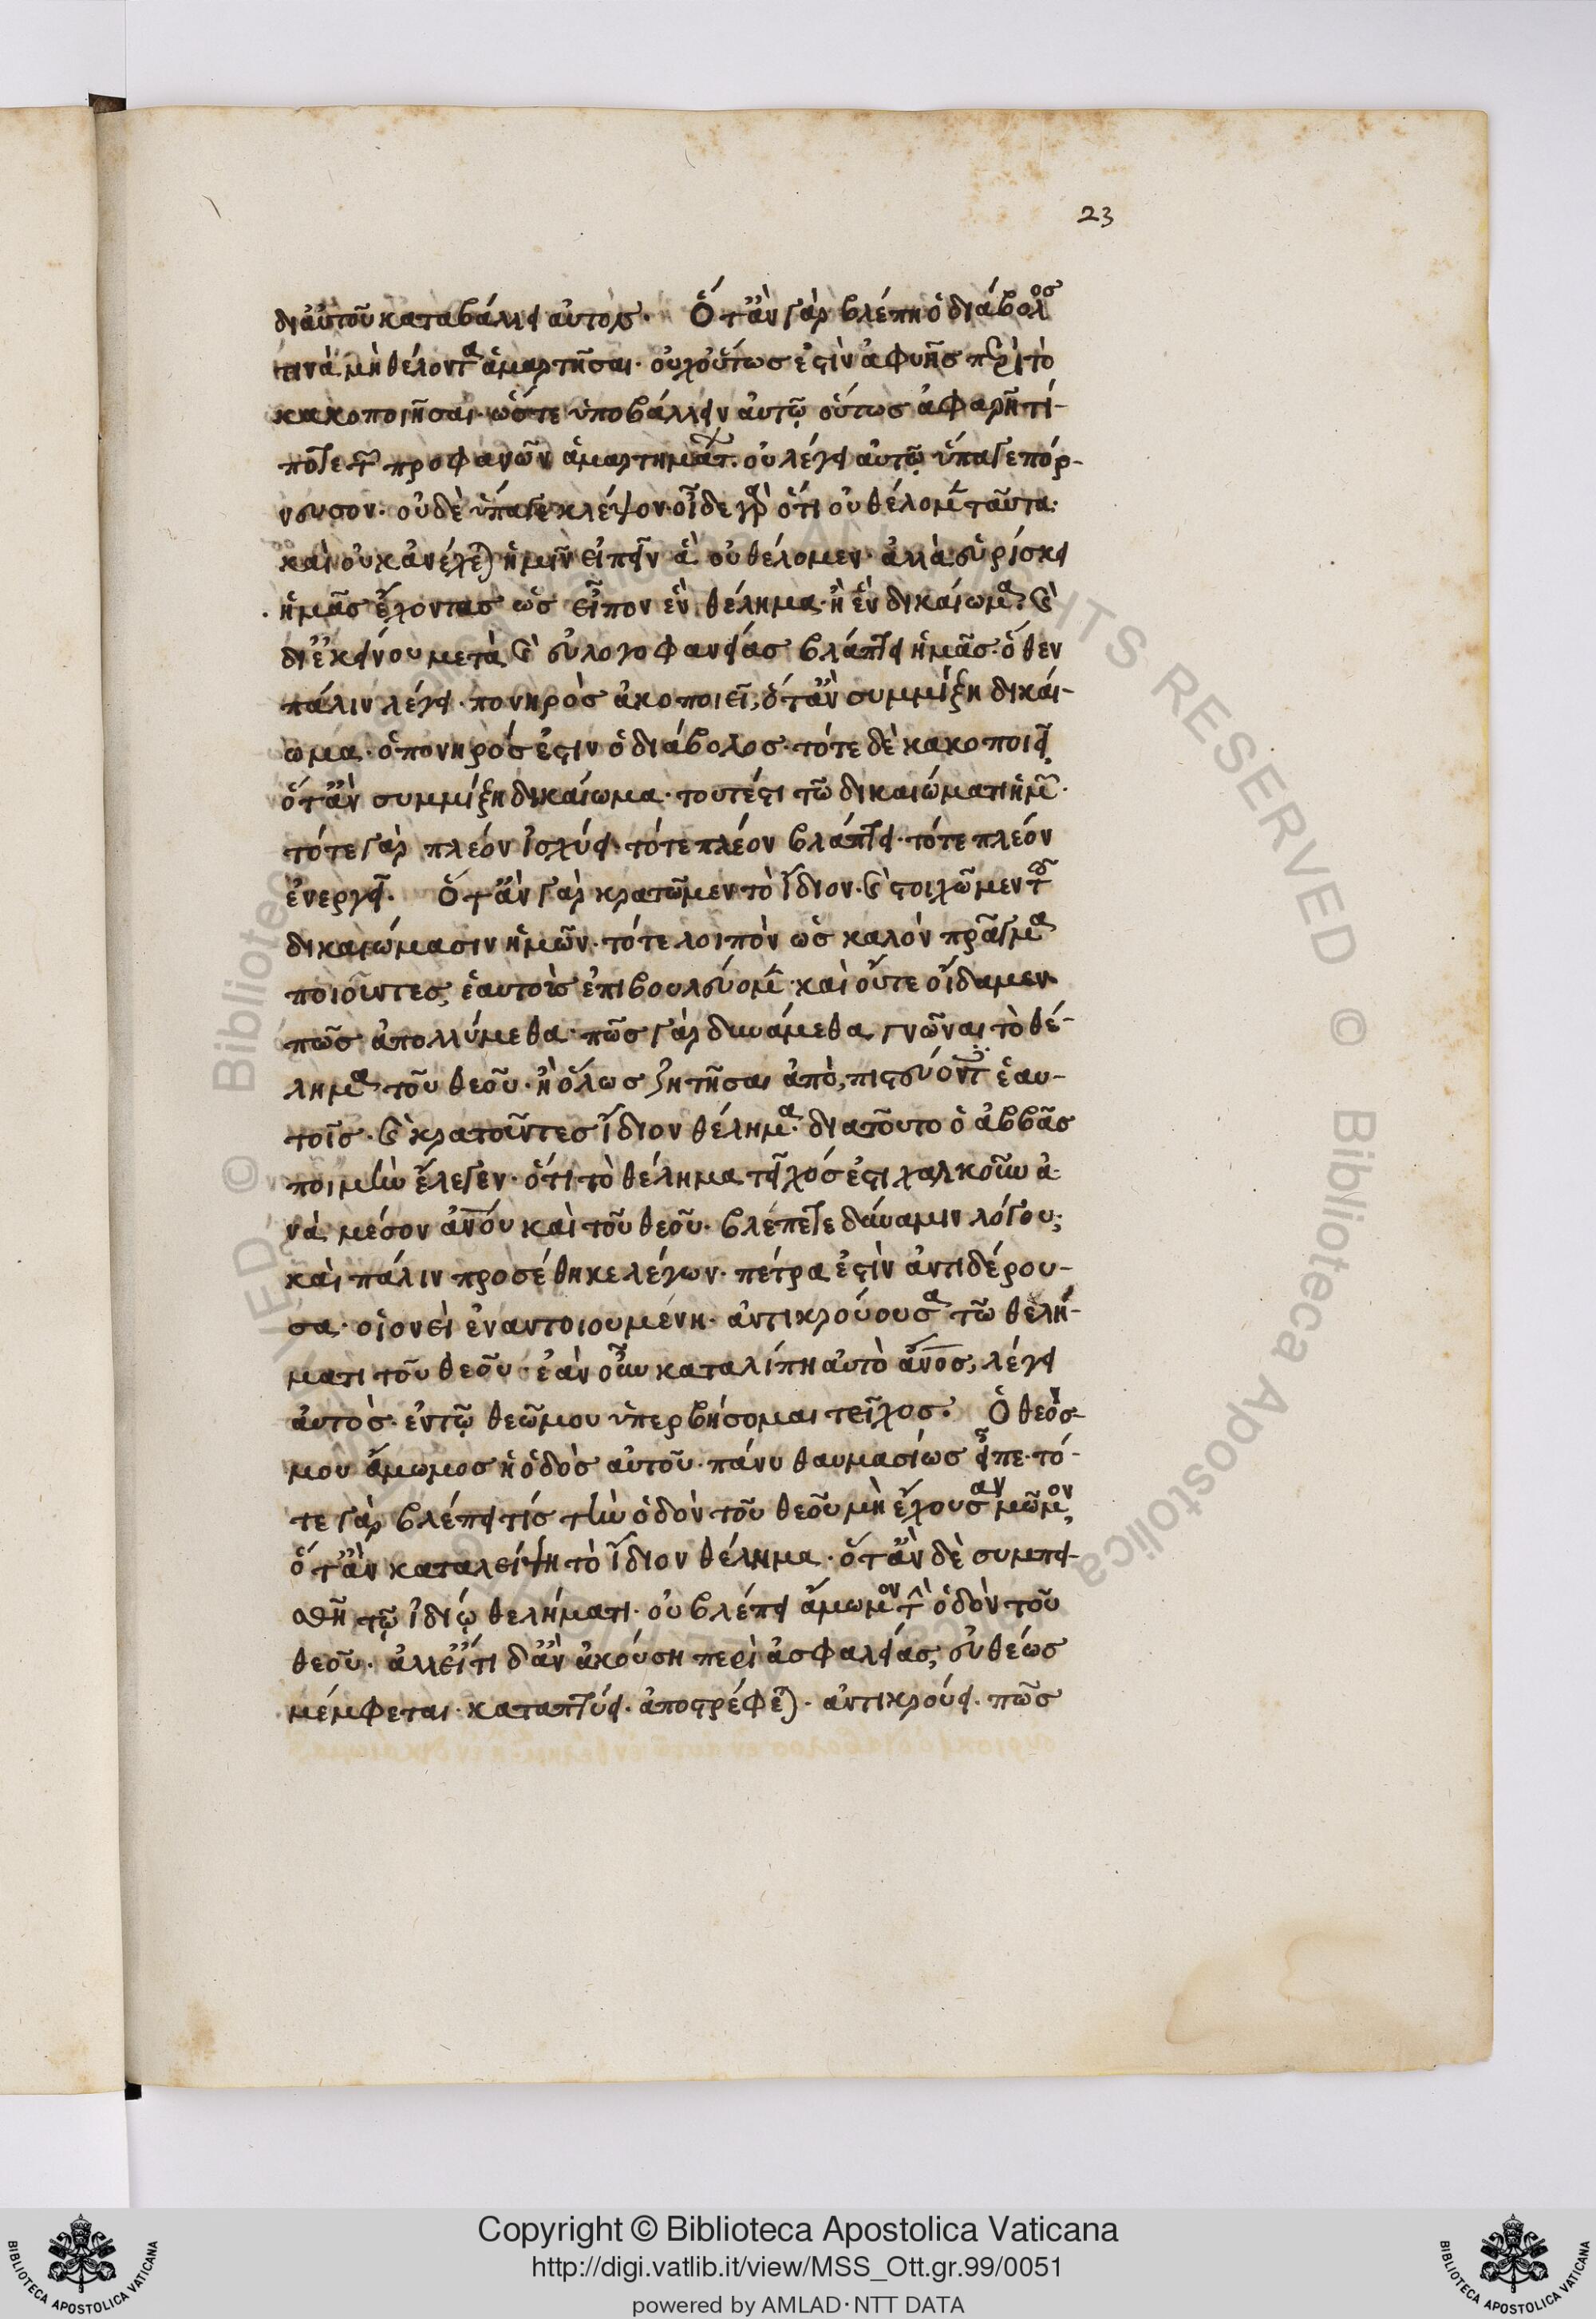 23
δι αὐτοῦ καταβάλλει αὐτούς. Ὅτ' ἂν γὰρ βλέπη ὁ διάβολος
τινὰ μὴ θέλοντα ἁμαρτῆσαι· οὐχ οὕτως ἐστὶν ἀφυὴς περὶ τὸ
κακοποιῆσαι· ὥστε ὑποβάλλειν αὐτῷ οὕτως ἀφ
ποτε τῶν προφανῶν ἁμαρτημάτων. οὐ λέγει αὐτῷ ὕπαγε πόρ-
νευσον· οὐδὲ ὕπαγε κλέψον· οἶδε γὰρ ὅτι οὐ θέλομεν ταῦτα·
καὶ οὐκ ἀνέχεται ἡμῖν εἰπεῖν ἃ οὐ θέλομεν· ἀλλὰ εὑρίσκει
ἡμᾶς ἔχοντας ὡς εἶπον ἓν θέλημα· ἢ ἓν δικαίωμα· καὶ
δι ἐκείνου μετὰ καὶ εὐλογοφανείας βλάπτει ἡμᾶς· ὅθεν
πάλιν λέγει· πονηρὸς κακοποιεῖ, ὅτ' ἂν συμμίξη δικαί-
ωμα· ὁ πονηρός ἐστιν ὁ διάβολος· τότε δὲ κακοποιεῖ
ὅτ' ἂν συμμίξη δικαίωμα· τουτέστι τῶ δικαιώματι ἡμῶν·
τότε γὰρ πλέον ἰσχύει· τότε πλέον βλάπτει· τότε πλέον
ἐνεργεῖ. Ὅτ' ἂν γὰρ κρατῶμεν τὸ ἴδιον· καὶ στοιχῶμεν τοῖς
δικαιώμασιν ἡμῶν· τότε λοιπὸν ὡς καλὸν πρᾶγμα
ποιοῦντες, ἑαυτοῖς ἐπιβουλεύομεν· καὶ οὔτε οἴδαμεν
πῶς ἀπολλύμεθα· πῶς γὰρ δυνάμεθα γνῶναι τὸ θέ-
λημα τοῦ θεοῦ· ἢ ὅλως ζητῆσαι αὐτό, πιστεύοντες ἑαυ-
τοῖς· καὶ κρατοῦντες ἴδιον θέλημα· διατοῦτο ὁ ἀββᾶς
ποιμὴν ἔλεγεν· ὅτι τὸ θέλημα τεῖχός ἐστι χαλκοῦν ἀ-
νὰ μέσον ἀνοῦ καὶ τοῦ θεοῦ· βλέπετε δύναμιν λόγου;
καὶ πάλιν προσέθηκε λέγων· πέτρα ἐστὶν ἀντιδέρου-
σα· οἱονεὶ ἐναντιουμένη· ἀντικρούουσα τῶ θελή-
ματι τοῦ θεοῦ· ἐὰν οὖν καταλίπη αὐτὸ ἄνος, λέγει
αὐτὸς· ἐν τῷ θεῶ μου ὑπερβήσομαι τεῖχος. Ὁ θεός
μου ἄμωμος ἡ ὁδὸς αὐτοῦ· πάνυ θαυμασίως εἶπε· τό-
τε γὰρ βλέπει τίς τὴν ὁδὸν τοῦ θεοῦ μὴ ἔχουσαν μῶμον,
ὅτ' ἂν καταλείψη τὸ ἴδιον θέλημα· ὅτ' ἂν δὲ συμπει-
σθῆ τῷ ἰδίῳ θελήματι· οὐ βλέπει ἄμωμον τὴν ὁδὸν τοῦ
θεοῦ· ἀλλ εἴ τι δ' ἂν ἀκούση περὶ ἀσφαλείας, εὐθέως
μέμφεται· καταπτύει· ἀποστρέφεται· ἀντικρούει· πῶς
Copyright © Biblioteca Apostolica Vaticana
http://digi.vatlib.it/view/MSS_Ott.gr.99/0051
powered by AMLAD·NTT DATA